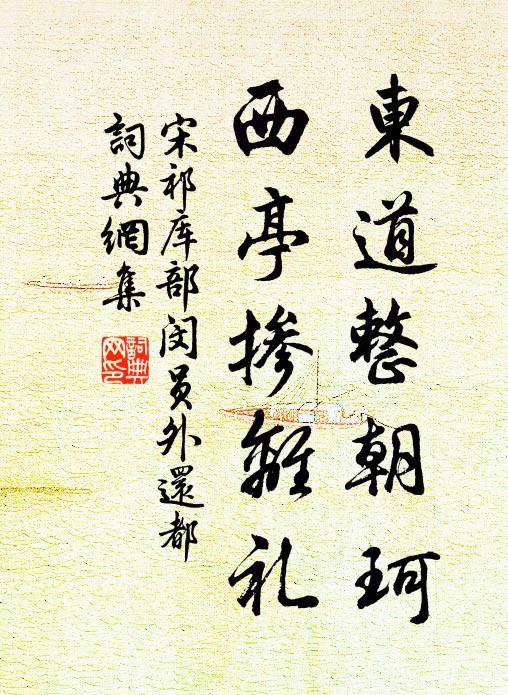 東道整朝珂
西亭掺離礼
宋祁库部闵員外還都
詞典網集